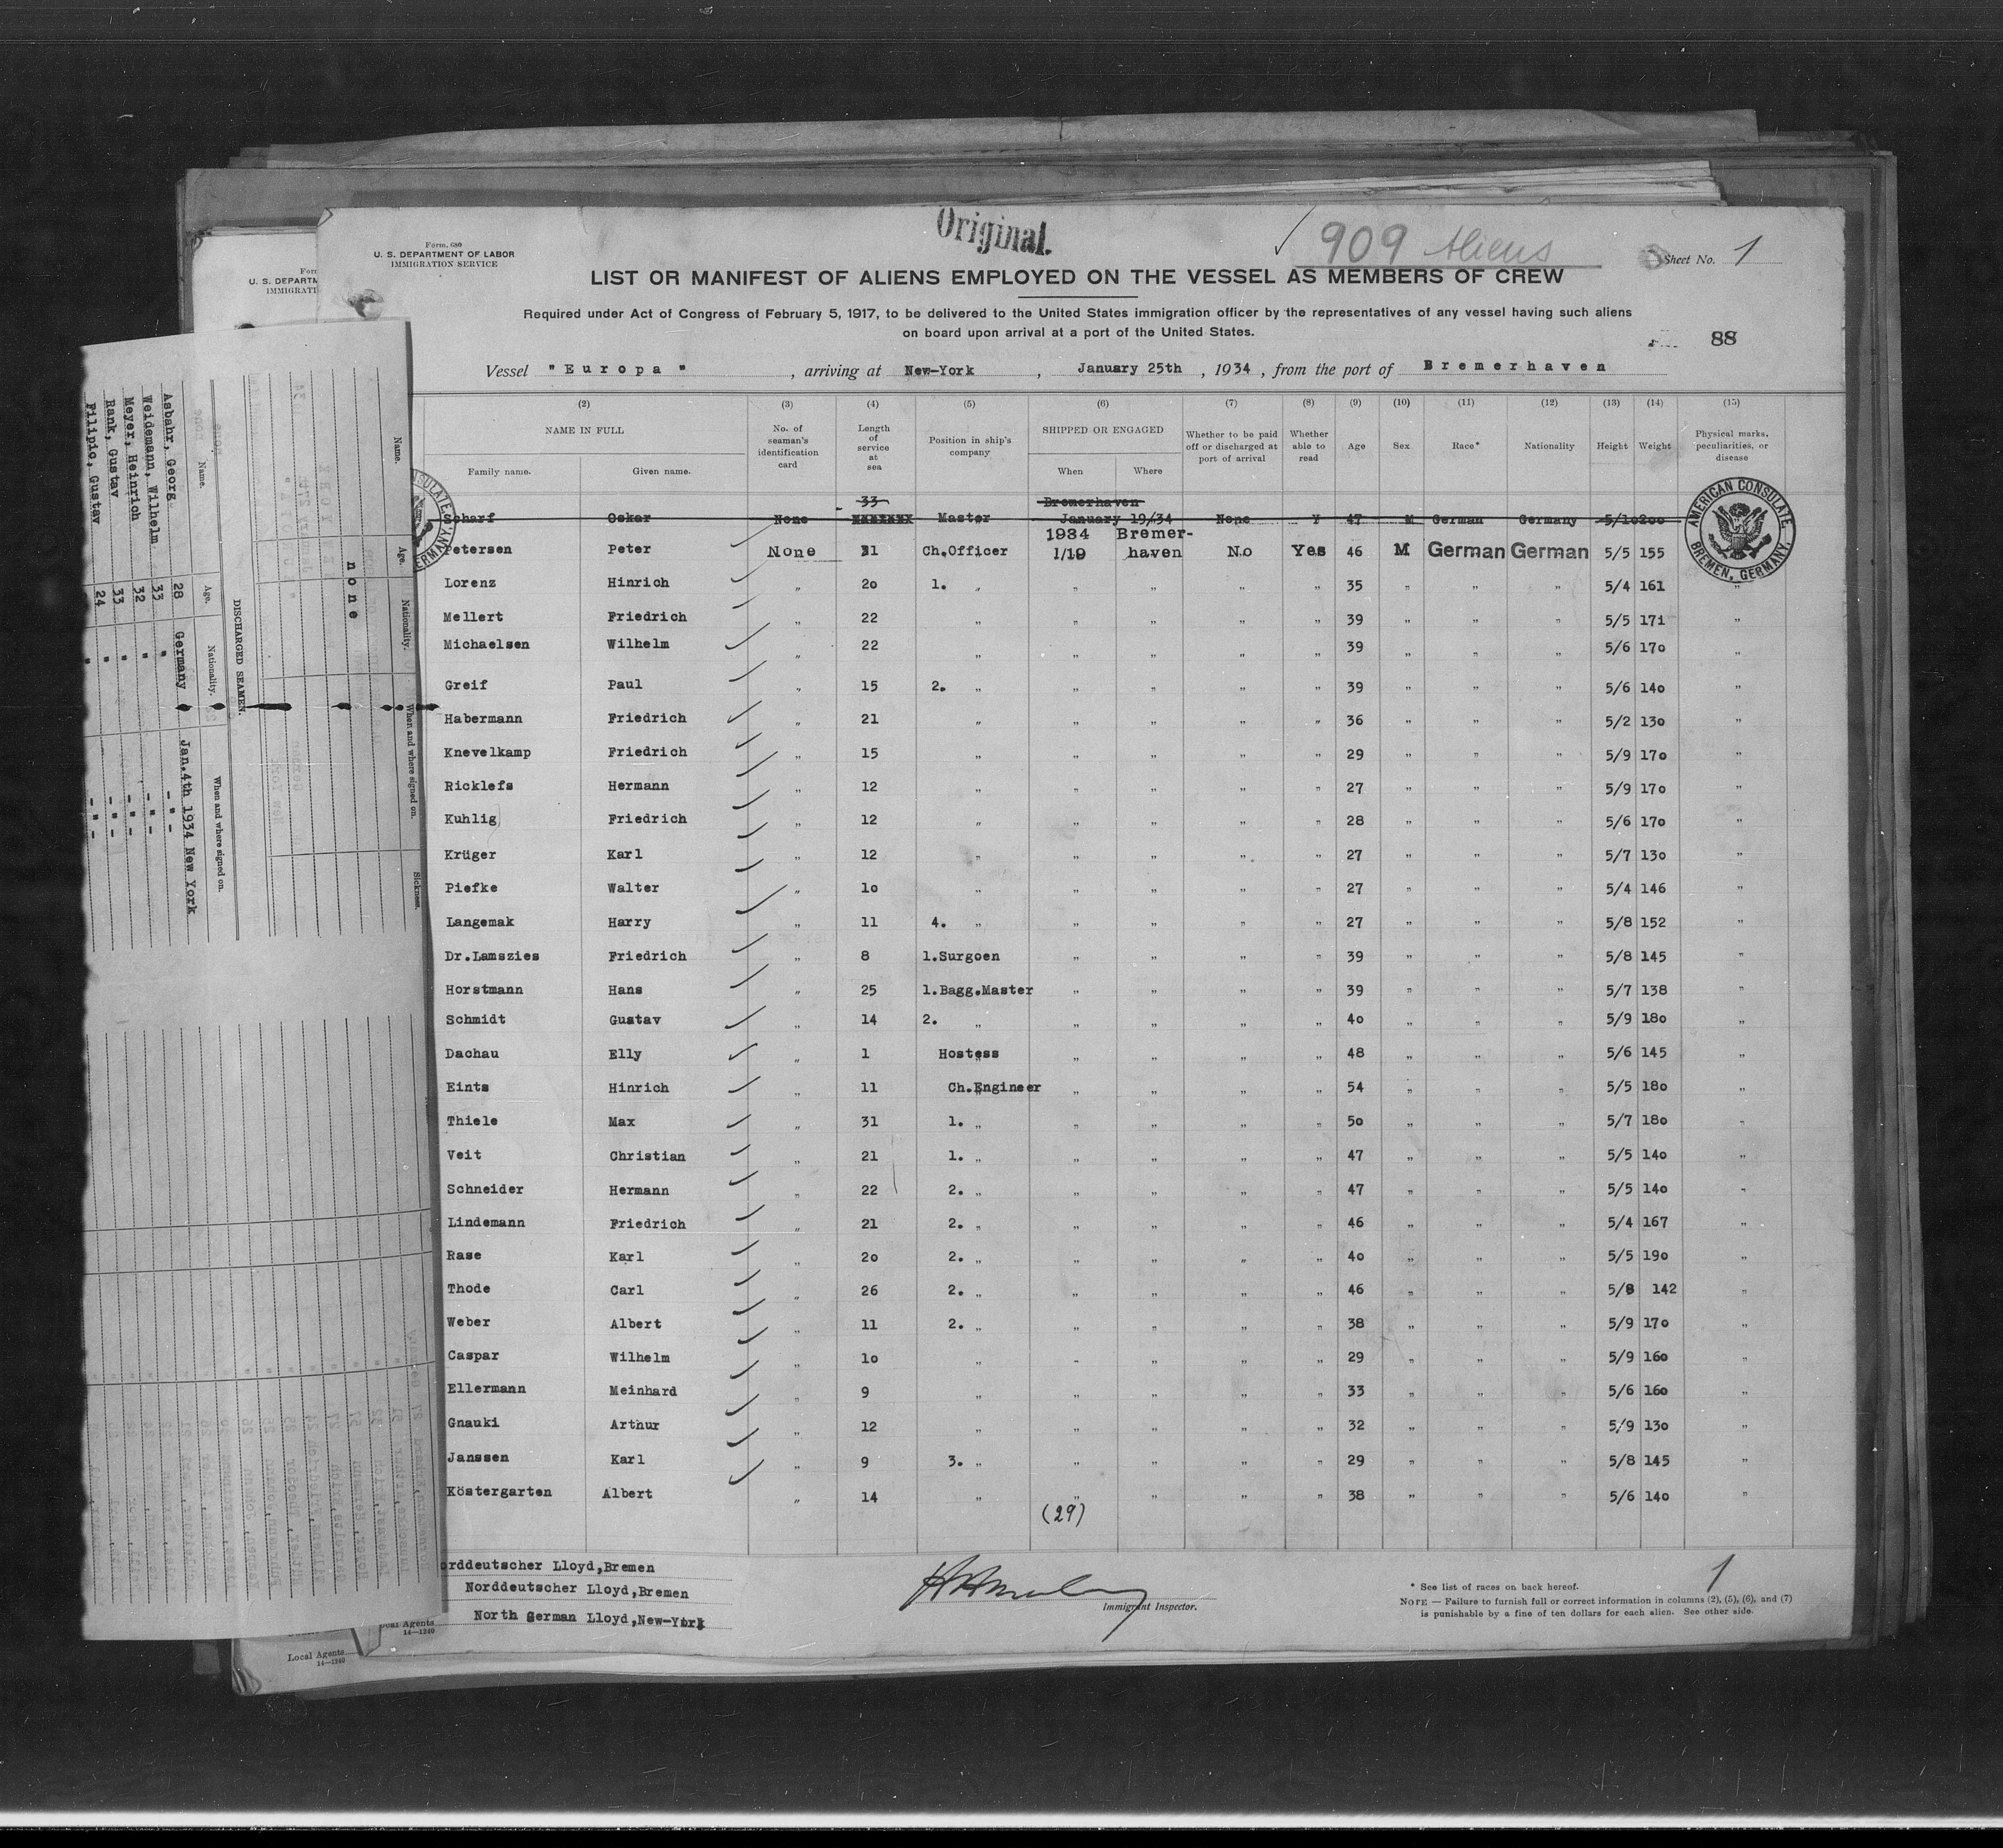 Original.
✓ 909 Aliens
Form 680
U. S. DEPARTMENT OF LABOR
IMMIGRATION SERVICE
Sheet No. 1
LIST OR MANIFEST OF ALIENS EMPLOYED ON THE VESSEL AS MEMBERS OF CREW
Required under Act of Congress of February 5, 1917, to be delivered to the United States immigration officer by the representatives of any vessel having such aliens
on board upon arrival at a port of the United States.
88
Vessel "Europa", arriving at New-York, January 25th, 1934, from the port of Bremerhaven
(2) (3) (4) (5) (6) (7) (8) (9) (10) (11) (12) (13) (14) (15)
NAME IN FULL Family name. Given name. No. of seaman's identification card Length of service at sea Position in ship's company SHIPPED OR ENGAGED When Where Whether to be paid off or discharged at port of arrival Whether able to read Age Sex Race* Nationality Height Weight Physical marks, peculiarities, or disease
33 Bremerhaven
Scharf Oskar None Master January 19/34 None Y 47 M German Germany 5/10 200
1934 Bremer-
Petersen Peter None 31 Ch.Officer 1/19 haven No Yes 46 M German German 5/5 155
Lorenz Hinrich " 20 1. " " " " " 35 " " " 5/4 161 "
Mellert Friedrich " 22 " " " " " 39 " " " 5/5 171 "
Michaelsen Wilhelm " 22 " " " " " 39 " " " 5/6 170 "
Greif Paul " 15 2. " " " " " 39 " " " 5/6 140 "
Habermann Friedrich " 21 " " " " " 36 " " " 5/2 130 "
Knevelkamp Friedrich " 15 " " " " " 29 " " " 5/9 170 "
Ricklefs Hermann " 12 " " " " " 27 " " " 5/9 170 "
Kuhlig Friedrich " 12 " " " " " 28 " " " 5/6 170 "
Krüger Karl " 12 " " " " " 27 " " " 5/7 130 "
Piefke Walter " 10 " " " " " 27 " " " 5/4 146 "
Langemak Harry " 11 4. " " " " " 27 " " " 5/8 152 "
Dr.Lamszies Friedrich " 8 1.Surgoen " " " " 39 " " " 5/8 145 "
Horstmann Hans " 25 1.Bagg.Master " " " " 39 " " " 5/7 138 "
Schmidt Gustav " 14 2. " " " " " 40 " " " 5/9 180 "
Dachau Elly " 1 Hostess " " " " 48 " " " 5/6 145 "
Eints Hinrich " 11 Ch.Engineer " " " " 54 " " " 5/5 180 "
Thiele Max " 31 1. " " " " " 50 " " " 5/7 180 "
Veit Christian " 21 1. " " " " " 47 " " " 5/5 140 "
Schneider Hermann " 22 2. " " " " " 47 " " " 5/5 140 "
Lindemann Friedrich " 21 2. " " " " " 46 " " " 5/4 167 "
Rase Karl " 20 2. " " " " " 40 " " " 5/5 190 "
Thode Carl " 26 2. " " " " " 46 " " " 5/8 142 "
Weber Albert " 11 2. " " " " " 38 " " " 5/9 170 "
Caspar Wilhelm " 10 " " " " " 29 " " " 5/9 160 "
Ellermann Meinhard " 9 " " " " " 33 " " " 5/6 160 "
Gnauki Arthur " 12 " " " " " 32 " " " 5/9 130 "
Janssen Karl " 9 3. " " " " " 29 " " " 5/8 145 "
Köstergarten Albert " 14 " " " " " 38 " " " 5/6 140 "
(29)
AMERICAN CONSULATE
BREMEN, GERMANY.
orddeutscher Lloyd,Bremen
Norddeutscher Lloyd,Bremen
North German Lloyd,New-York
Immigrant Inspector.
1
* See list of races on back hereof.
NOTE — Failure to furnish full or correct information in columns (2), (5), (6), and (7)
is punishable by a fine of ten dollars for each alien. See other side.
cal Agents
14—1240
Local Agents
14—1240
Form
U. S. DEPARTM
IMMIGRATI
Name. Age. Nationality. When and where signed on. Sickness.
none
DISCHARGED SEAMEN.
Name. Age. Nationality. When and where signed on.
Asbahr, Georg 28 Germany Jan.4th 1934 New York
Weidemann, Wilhelm 33 " - " -
Meyer, Heinrich 32 " - " -
Rank, Gustav 33 " - " -
Filipic, Gustav 24 " - " -